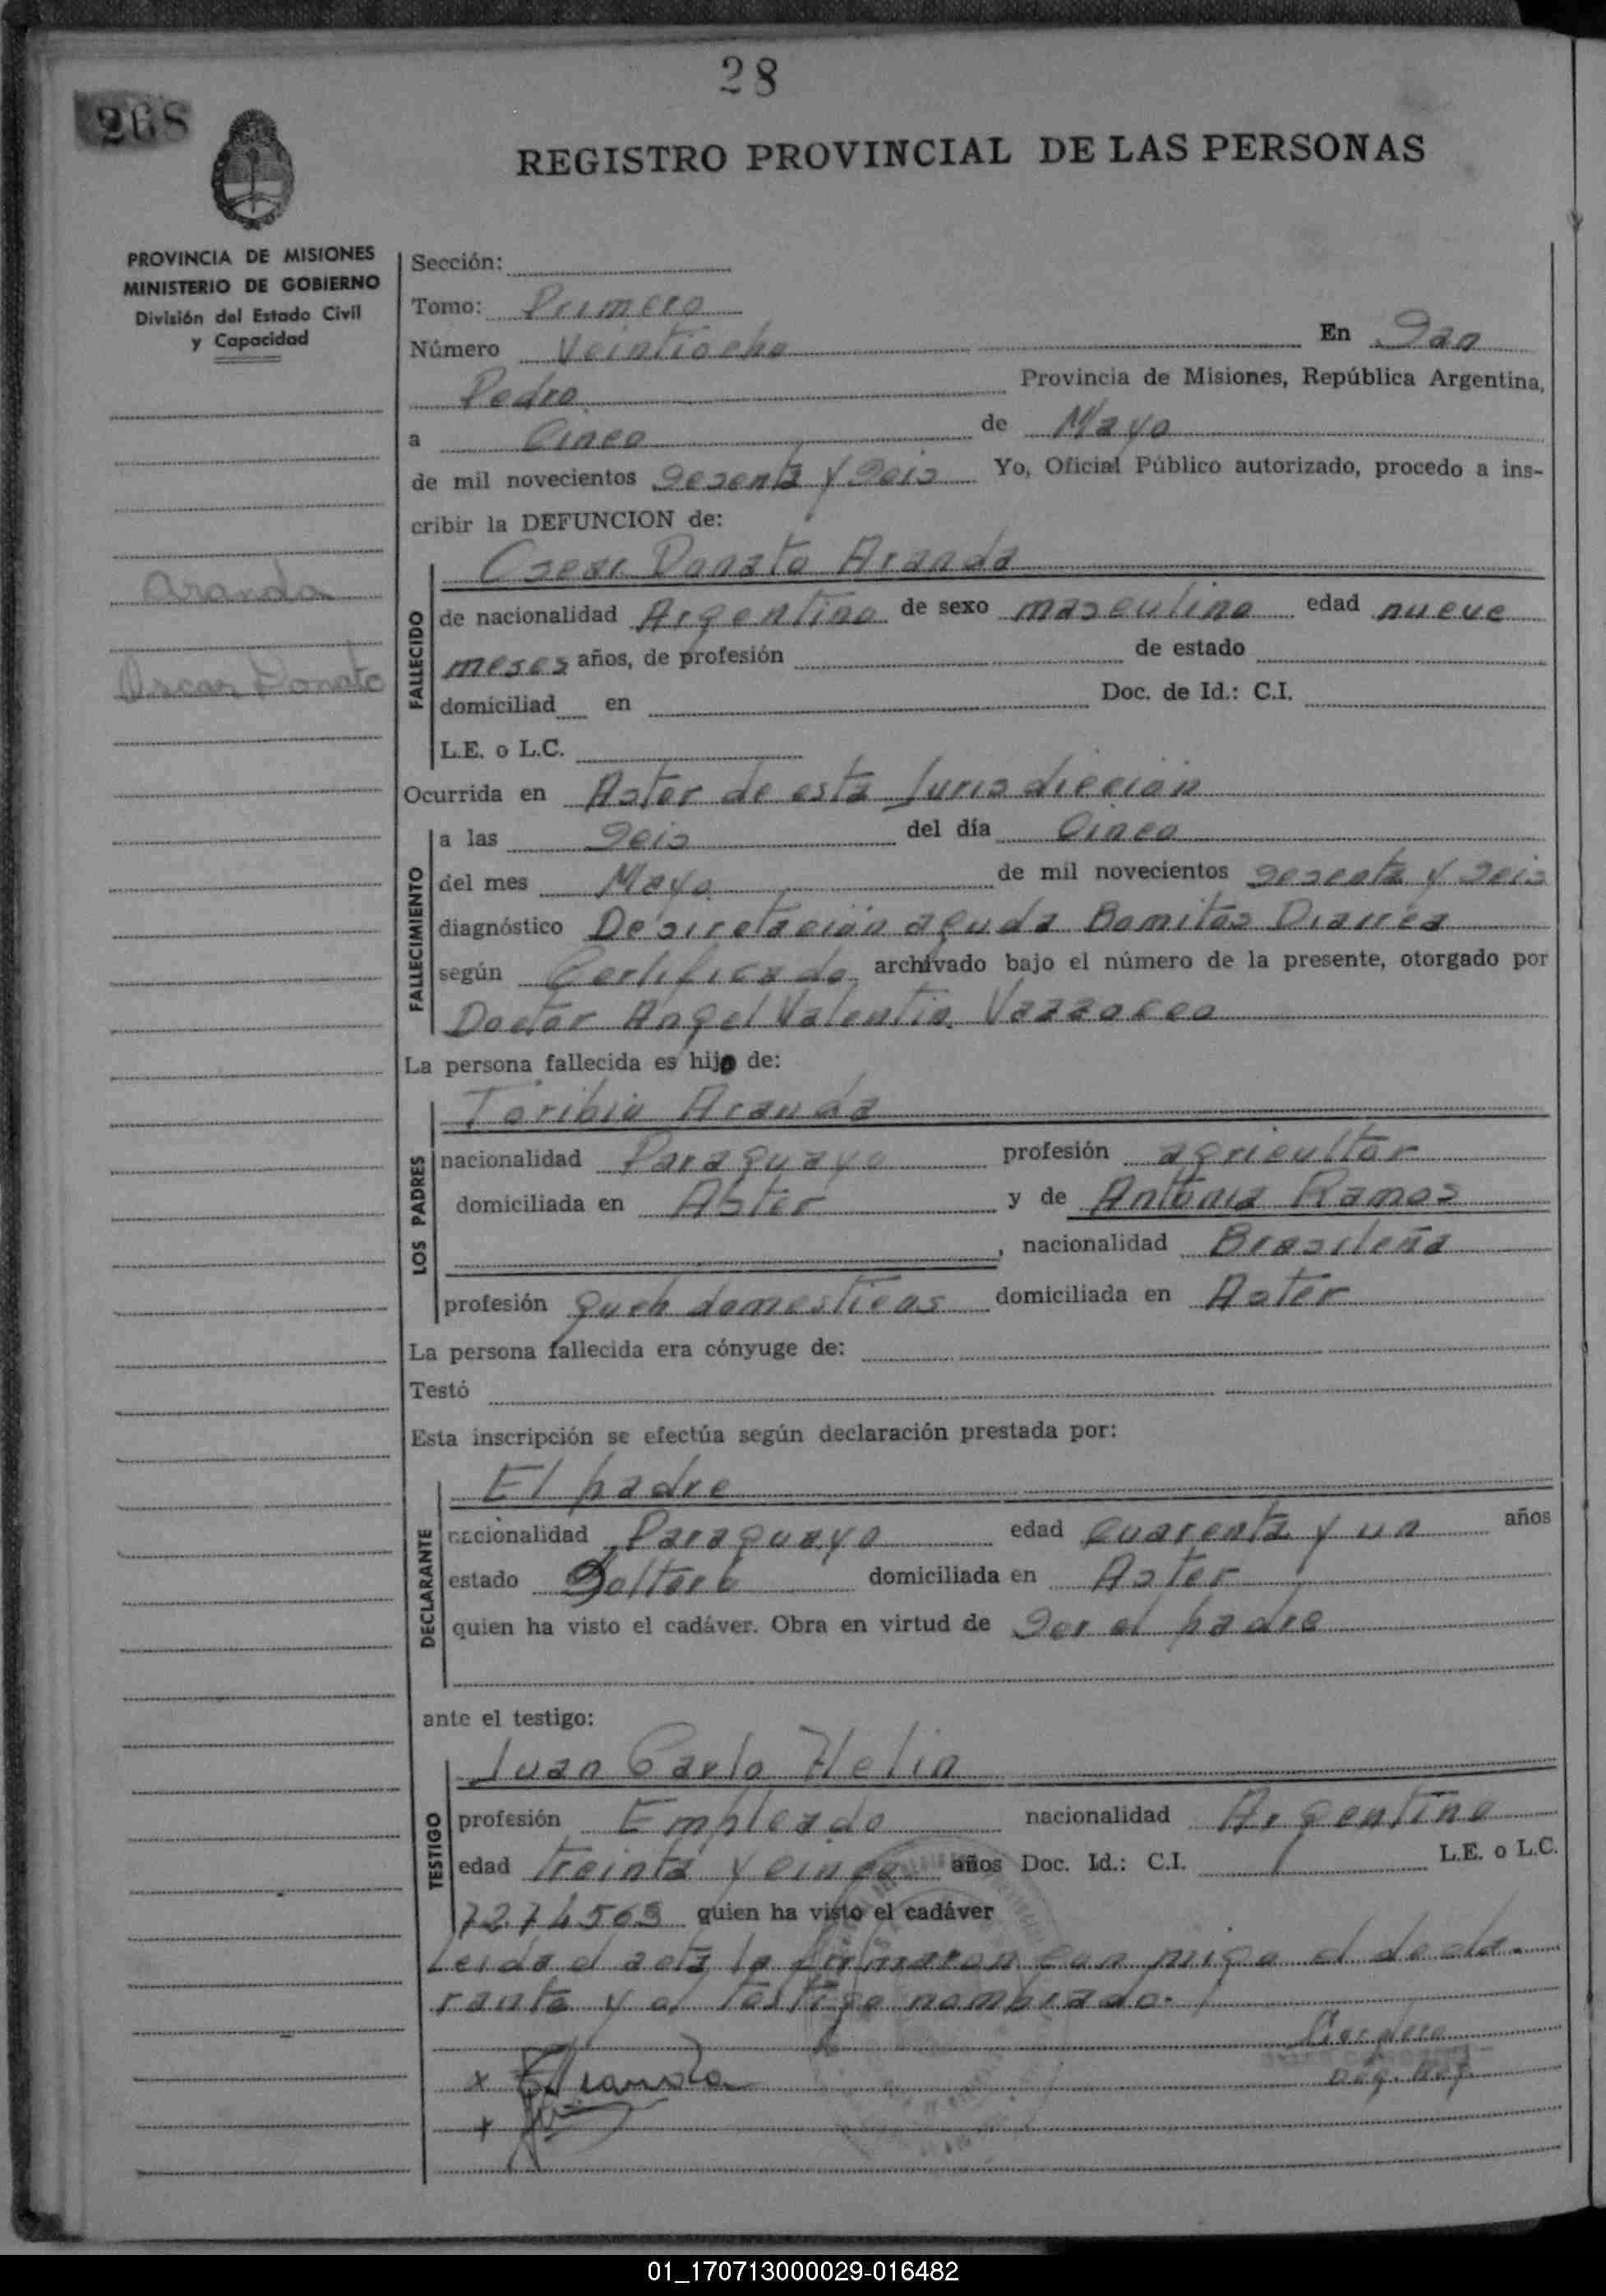 28
268
REGISTRO PROVINCIAL DE LAS PERSONAS
PROVINCIA DE MISIONES
MINISTERIO DE GOBIERNO
División del Estado Civil
y Capacidad
Aranda
Oscar Donato
Sección:
Tomo: Primero
Número Veintiocho En San
Pedro Provincia de Misiones, República Argentina,
a Cinco de Mayo
de mil novecientos sesenta y seis Yo, Oficial Público autorizado, procedo a ins-
cribir la DEFUNCION de:
FALLECIDO
Oscar Donato Aranda
de nacionalidad Argentino de sexo masculino edad nueve
meses años, de profesión de estado
domiciliad en Doc. de Id.: C.I.
L.E. o L.C.
Ocurrida en Aster de esta Jurisdiccion
FALLECIMIENTO
a las Seis del día Cinco
del mes Mayo de mil novecientos sesenta y seis
diagnóstico aguda Bomitos Diarrea
según Certificado archivado bajo el número de la presente, otorgado por
Doctor Angel Valentin
La persona fallecida es hijo de:
LOS PADRES
Toribio Aranda
nacionalidad Paraguayo profesión agricultor
domiciliada en Aster y de Antonia Ramos
, nacionalidad Brasileña
profesión queh domesticos domiciliada en Aster
La persona fallecida era cónyuge de:
Testó
Esta inscripción se efectúa según declaración prestada por:
DECLARANTE
El padre
nacionalidad Paraguayo edad cuarenta y un años
estado Soltero domiciliada en Aster
quien ha visto el cadáver. Obra en virtud de ser el padre
ante el testigo:
TESTIGO
Juan Carlo Helin
profesión Empleado nacionalidad Argentino
edad treinta y cinco años Doc. Id.: C.I. L.E. o L.C.
7274563 quien ha visto el cadáver
Leida el acta la firmaron con migo el decla-
rante y el testigo nombrado.
x Aranda
x
01_170713000029-016482